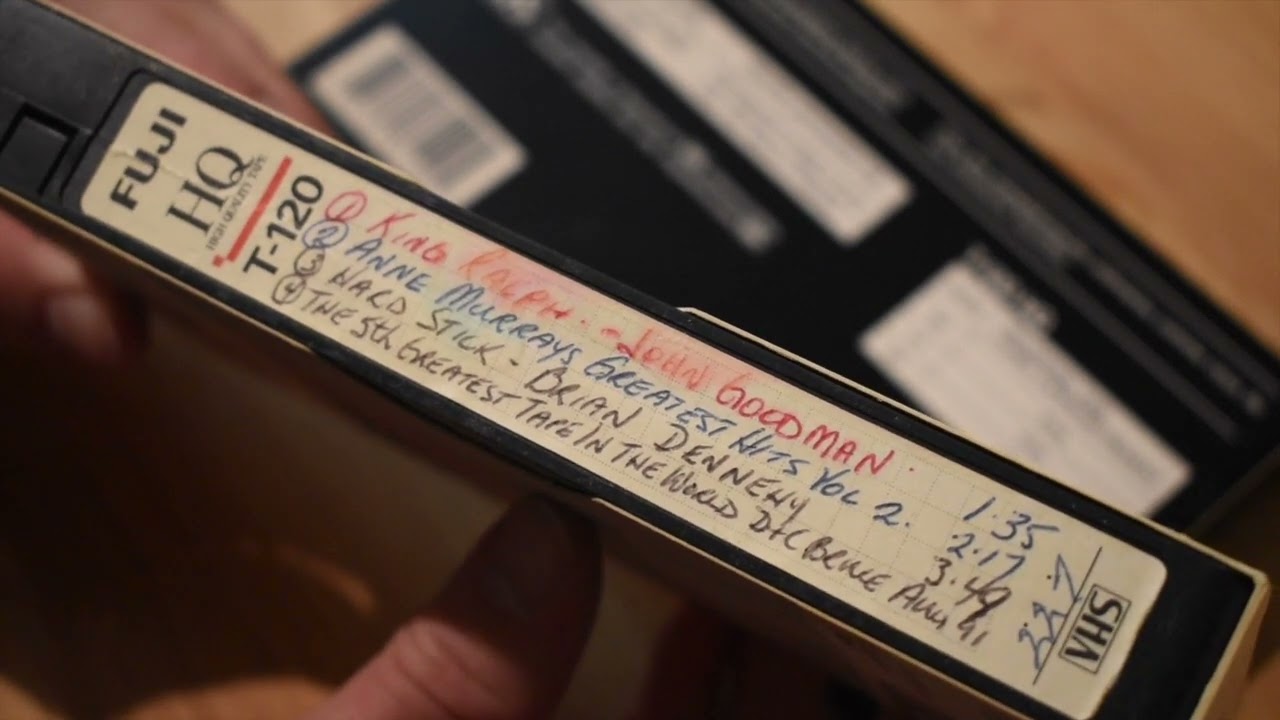 FUJI
HQ
HIGH QUALITY TAPE
T-120
① KING RALPH. - JOHN GOODMAN.
② ANNE MURRAYS GREATEST HITS VOL 2. 1.35
③ HARD STICK - BRIAN DENNEHY 2.17
④ THE 5th GREATEST TAPE IN THE WORLD D+C BRUCE AUG 91 3.49
VHS